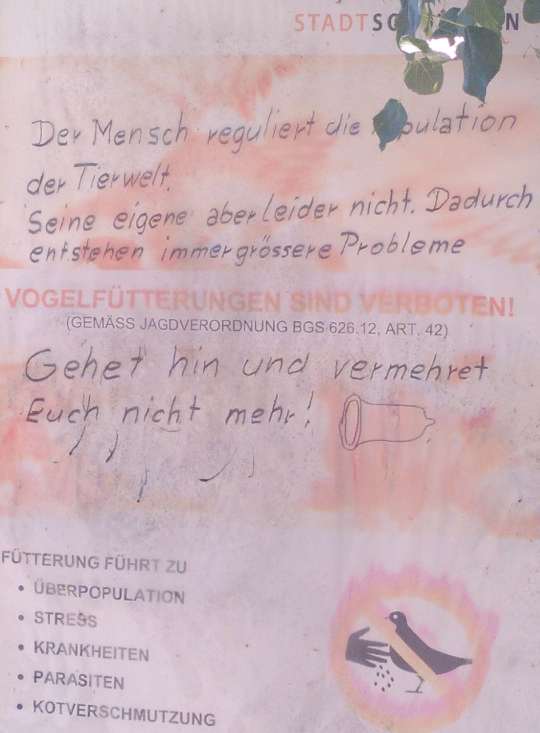 Der Mensch reguliert die
der Tierwelt.
Seine eigene aber leider nicht. Dadurch
entstehen immer grössere Probleme
VOGELFÜTTERUNGEN SIND VERBOTEN!
(GEMÄSS JAGDVERORDNUNG BGS 626.12, ART. 42)
Gehet hin und vermehret
Euch nicht mehr!
FÜTTERUNG FÜHRT ZU
• ÜBERPOPULATION
• STRESS
• KRANKHEITEN
• PARASITEN
• KOTVERSCHMUTZUNG